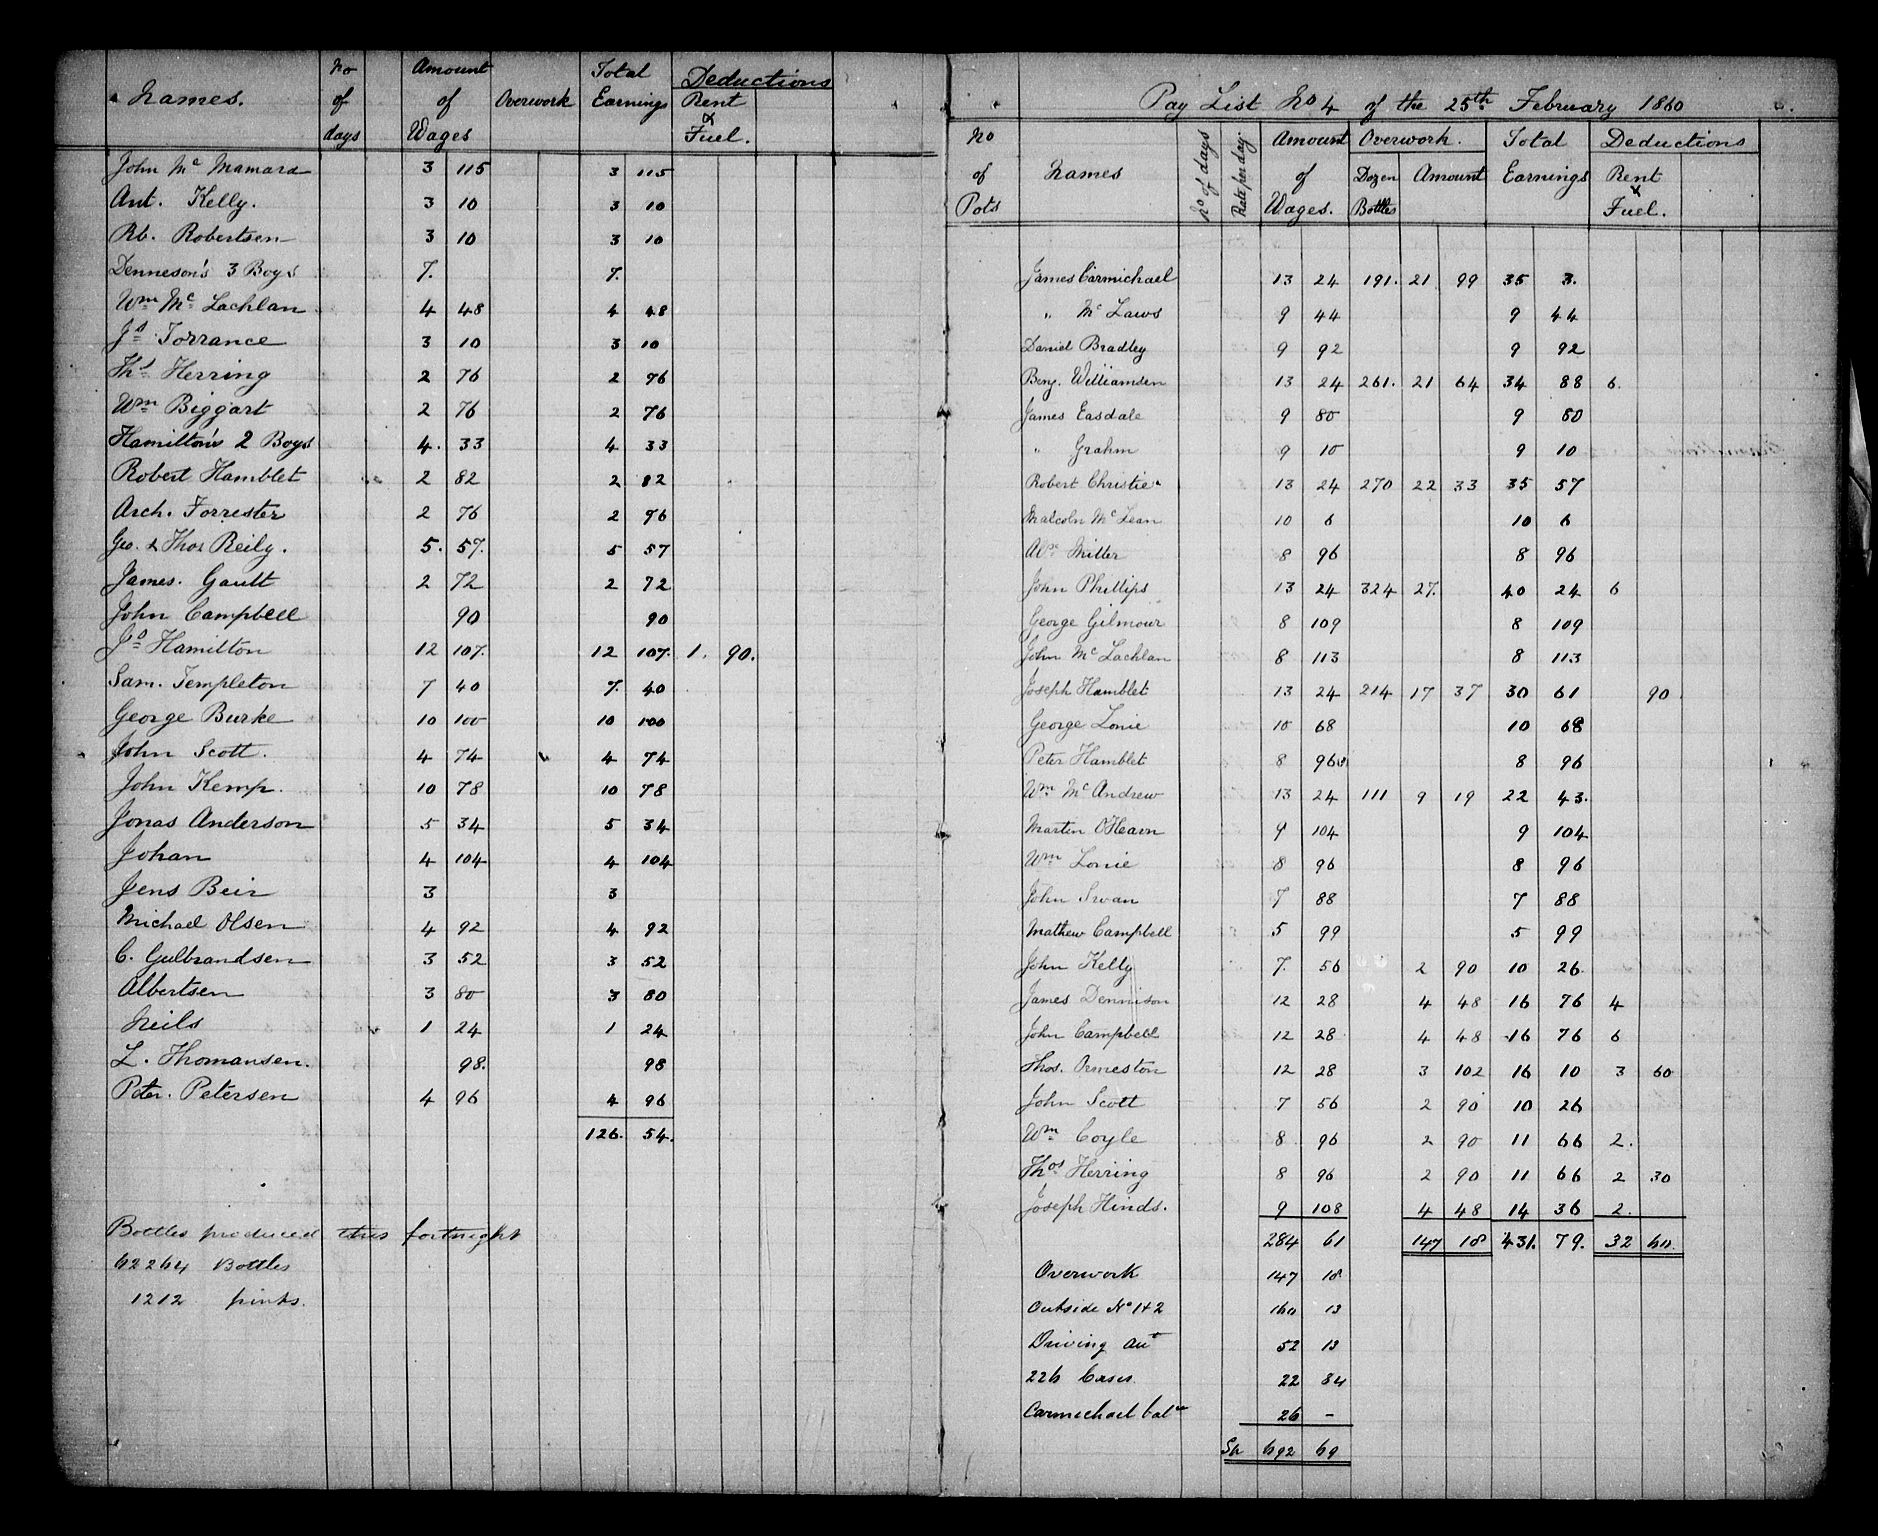 Names. No of days Amount of Wages Overwork Total Earnings Deductions Rent & Fuel.
John Mc Mamara 3 115 3 115
Ant. Kelly. 3 10 3 10
Rb. Robertsen 3 10 3 10
Denneson's 3 Boys 7. 7.
Wm Mc Lachlan 4 48 4 48
Js Torrance 3 10 3 10
Ths Herring 2 76 2 76
Wm Biggart 2 76 2 76
Hamilton's 2 Boys 4. 33 4 33
Robert Hamblet 2 82 2 82
Arch. Forrester 2 76 2 76
Geo. & Thos Reily. 5. 57. 5 57
James. Gault 2 72 2 72
John Campbell 90 90
Js Hamilton 12 107. 12 107. 1. 90.
Sam. Templeton 7 40 7. 40
George Burke 10 100 10 100
John Scott. 4 74 4 74
John Kemp. 10 78 10 78
Jonas Anderson 5 34 5 34
Johan 4 104 4 104
Jens Beir 3 3
Michael Olsen 4 92 4 92
C. Gulbrandsen 3 52 3 52
Albertsen 3 80 3 80
Neils 1 24 1 24
L. Thomansen. 98. 98
Peter. Petersen 4 96 4 96
126. 54.
Bottles produced this fortnight
62264 Bottles
1212 pints.
Pay List No 4 of the 25th February 1860
No of Pots Names No of days Rate per day. Amount of Wages. Overwork. Dozen Bottles Amount Total Earnings Deductions Rent & Fuel.
James Carmichael 13 24 191. 21 99 35 3.
" Mc Laws 9 44 9 44
Daniel Bradley 9 92 9 92
Benj. Williamsen 13 24 261. 21 64 34 88 6.
James Easdale 9 80 9 80
" Grahm 9 10 9 10
Robert Christie 13 24 270 22 33 35 57
Malcoln Mc Lean 10 6 10 6
Wm Miller 8 96 8 96
John Phillips 13 24 324 27. 40 24 6
George Gilmour 8 109 8 109
John Mc Lachlan 8 113 8 113
Joseph Hamblet 13 24 214 17 37 30 61 90
George Lonie 10 68 10 68
Peter Hamblet 8 96 8 96
Wm Mc Andrew 13 24 111 9 19 22 43.
Martin OHearn 9 104 9 104
Wm Lonie 8 96 8 96
John Swan 7 88 7 88
Mathew Campbell 5 99 5 99
John Kelly 7. 56 2 90 10 26.
James Dennison 12 28 4 48 16 76 4
John Campbell 12 28 4 48 16 76 6
Thos. Ormeston 12 28 3 102 16 10 3 60
John Scott 7 56 2 90 10 26
Wm Coyle 8 96 2 90 11 66 2.
Thos Herring 8 96 2 90 11 66 2 30
Joseph Hinds. 9 108 4 48 14 36 2.
284 61 147 18 431. 79. 32 60.
Overwork 147 18
Outside No 1 & 2 160 13
Driving 52 13
226 Cases 22 84
Carmichael balce 26 -
692 69